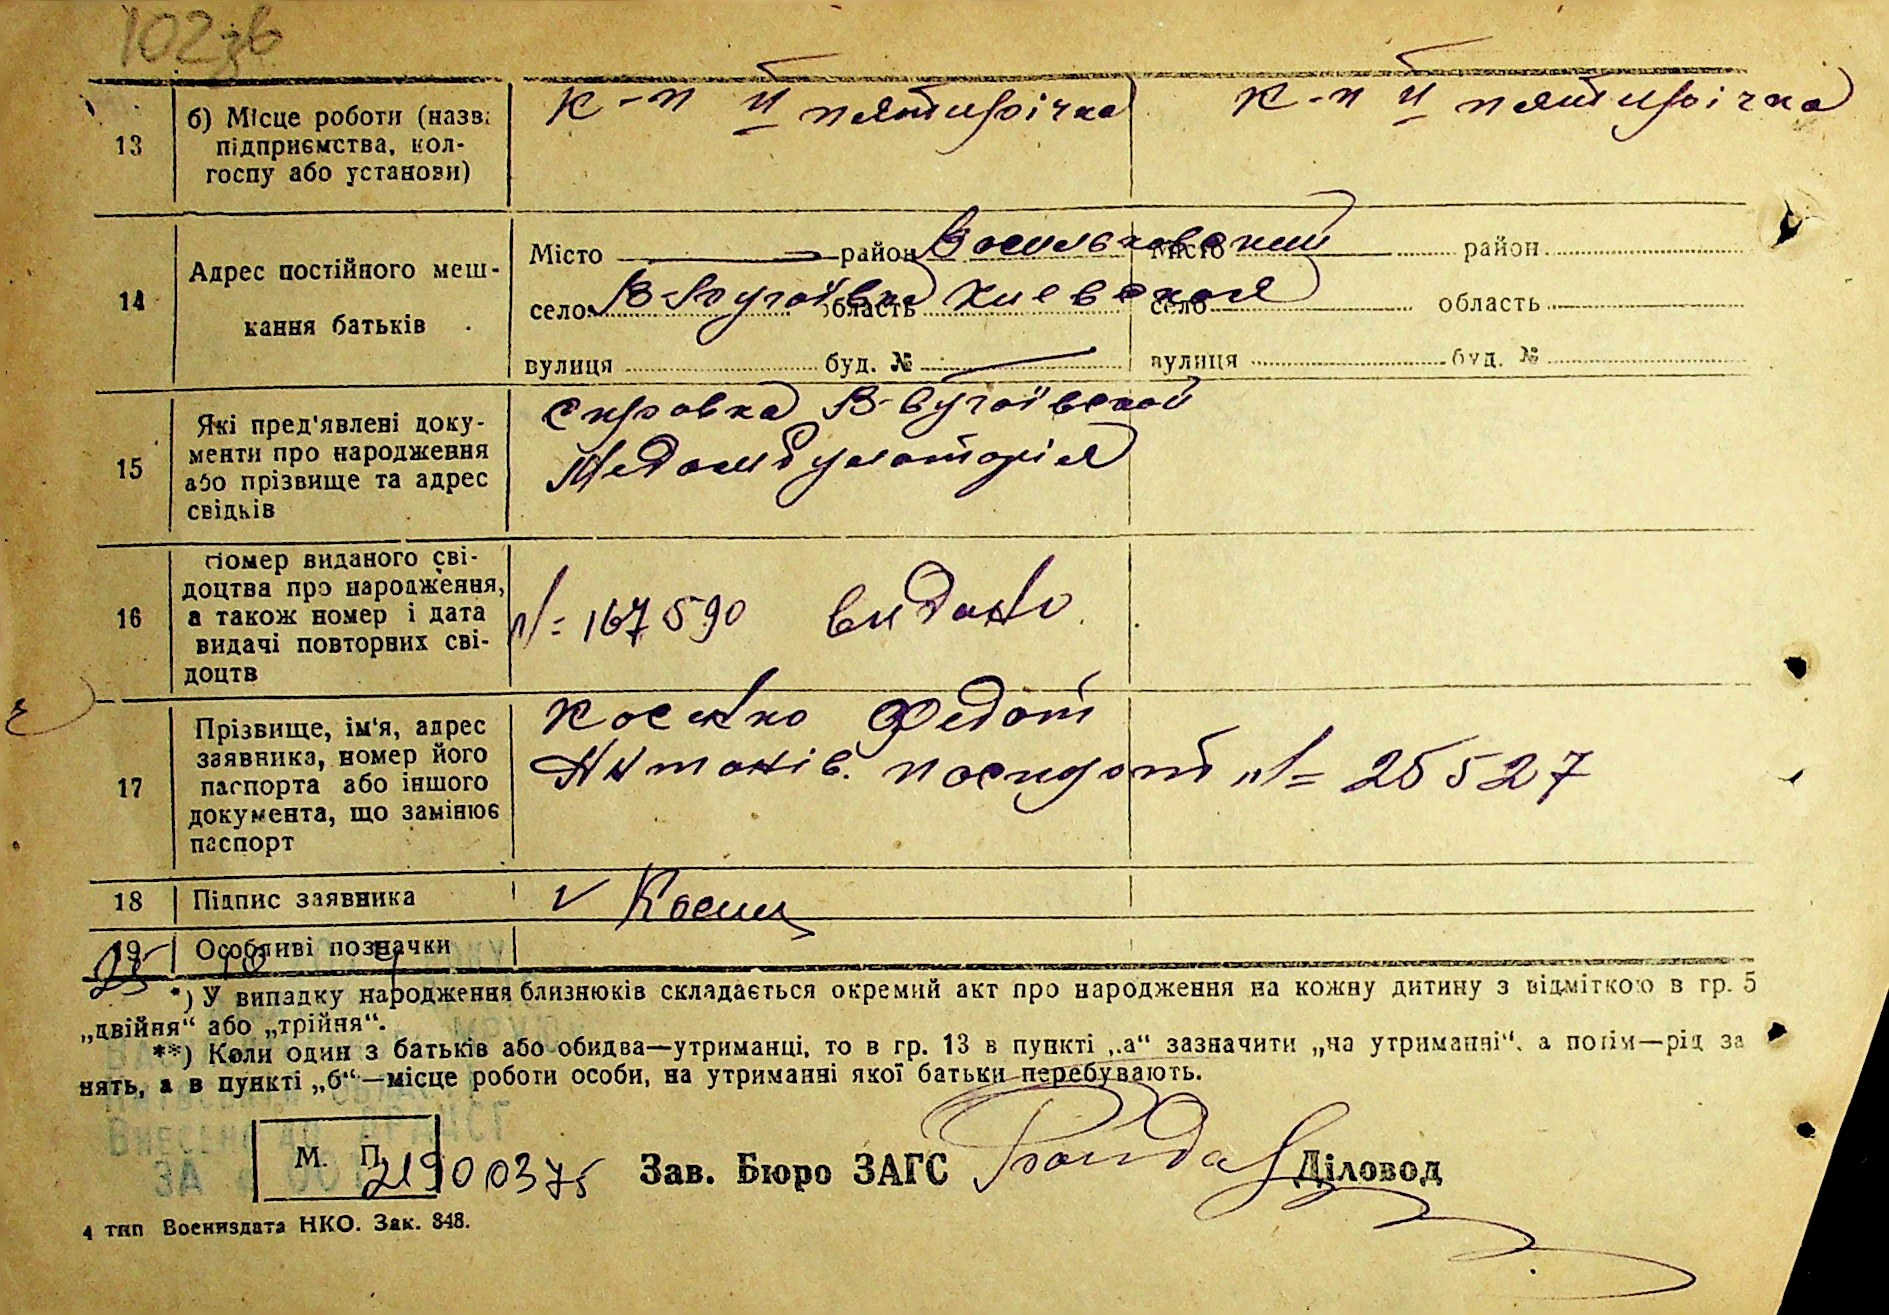 102зв
13 б) Місце роботи (назва К-п ІІ пятирічка К-п ІІ пятирічка
підприємства, кол-
госпу або установи)
14 Адрес постійного меш-
кання батьків
Місто район Васильковский Місто район
село В-Бугаївка область Киевская село область
вулиця буд. № вулиця буд. №
15 Які пред'явлені доку-
менти про народження
або прізвище та адрес
свідків
Справка В-бугаївской
Медамбулаторія
16 Номер виданого сві-
доцтва про народження,
а також номер і дата
видачі повторних сві-
доцтв
№ 167590 видано
17 Прізвище, ім'я, адрес
заявника, номер його
паспорта або іншого
документа, що замінює
паспорт
Федот
Антонів. паспорт № 25527
18 Підпис заявника
19 Особливі позначки
*) У випадку народження близнюків складається окремий акт про народження на кожну дитину з відміткою в гр. 5
„двійня“ або „трійня“.
**) Коли один з батьків або обидва—утриманці, то в гр. 13 в пункті „а“ зазначити „на утриманні“, а потім—рід за
нять, а в пункті „б“—місце роботи особи, на утриманні якої батьки перебувають.
М. П. 21900375 Зав. Бюро ЗАГС Діловод
4 тип Воениздата НКО. Зак. 848.